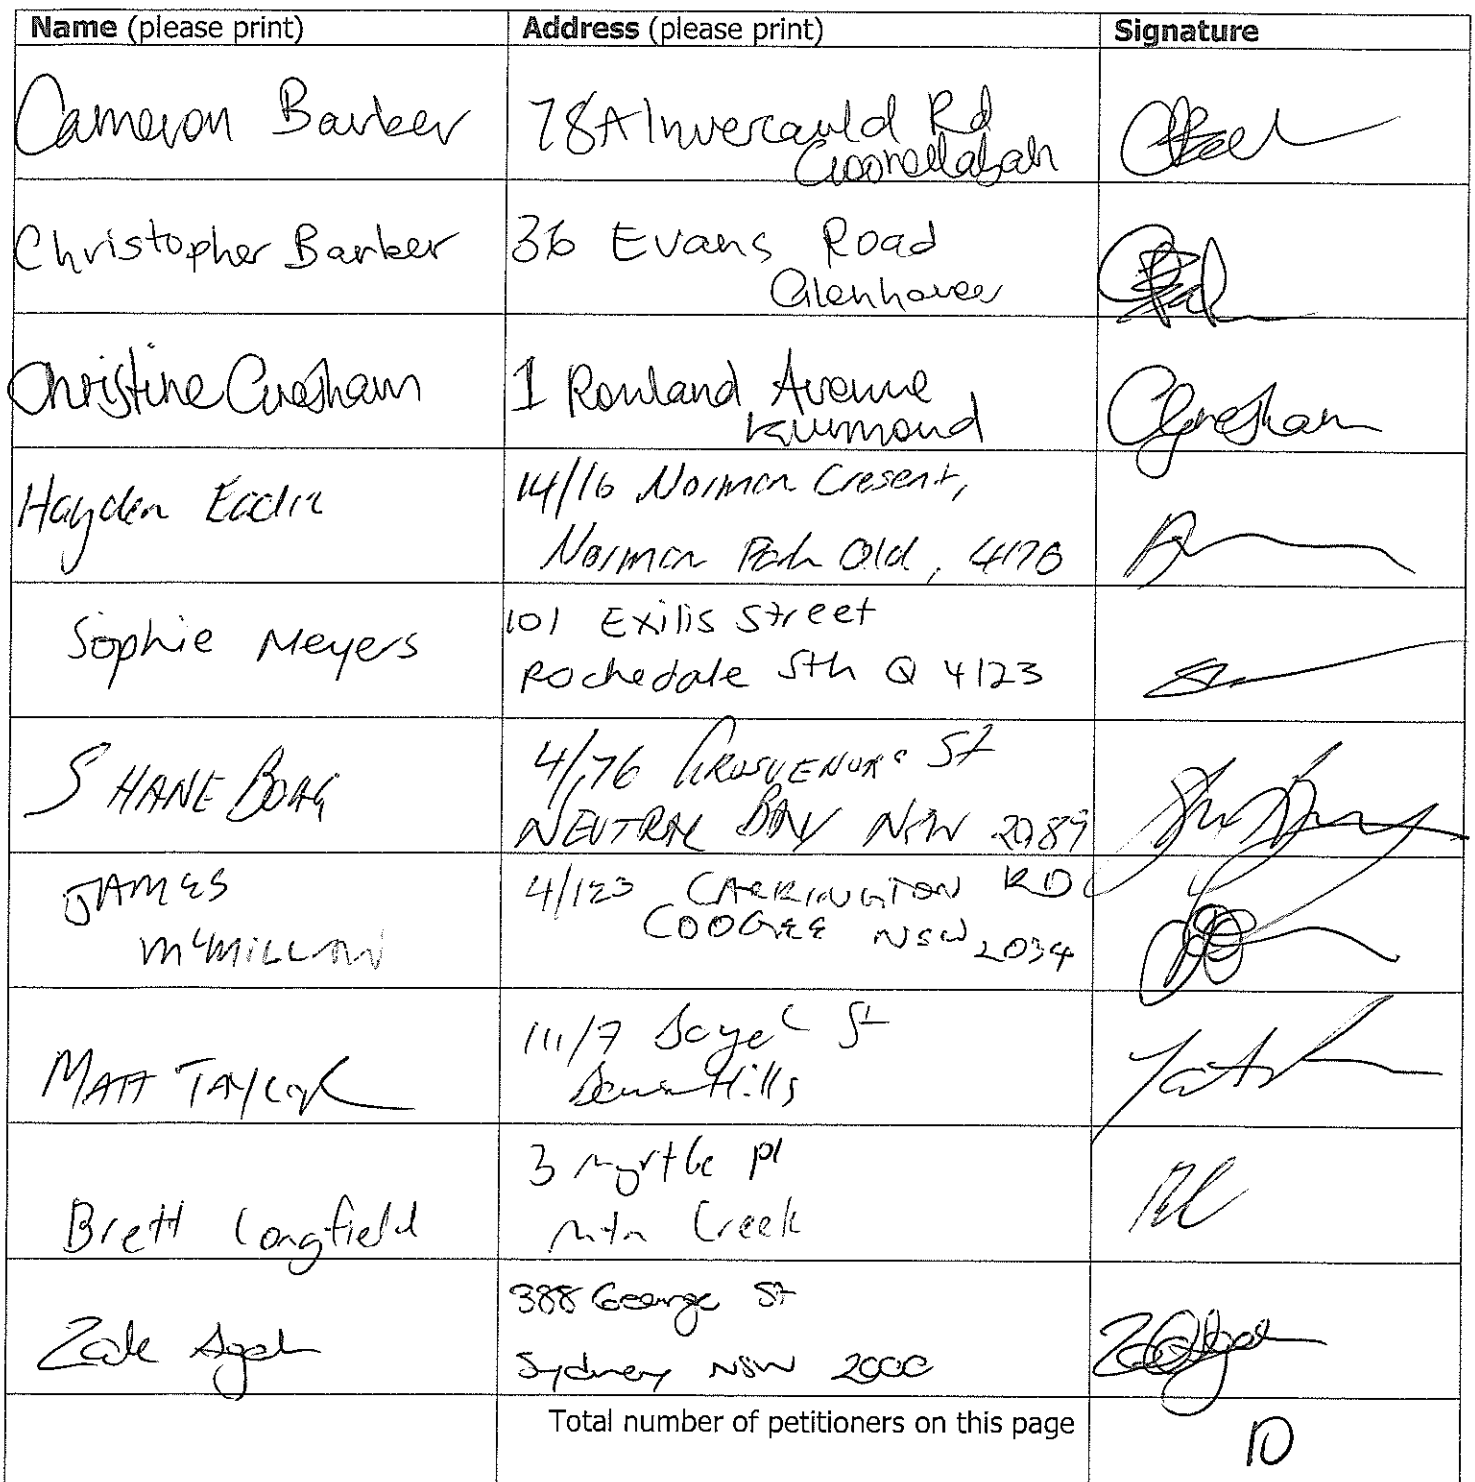 Name (please print) Address (please print) Signature
Cameron Barker 78A Invercauld Rd
Goonellabah
Christopher Barker 36 Evans Road
Glenhaven
Christine Gresham 1 Rowland Avenue
Kurmond
Hayden 14/16 Norman Cresent,
Norman Park Qld, 4170
Sophie Meyers 101 Exilis Street
Rochedale Sth Q 4123
SHANE BORG 4/76 GROSVENOR St
NEUTRAL BAY NSW 2089
JAMES 4/123 CARRINGTON RD
McMILLAN COOGEE NSW 2034
111/7 St
MATT TAYLOR Hills
3 Myrtle pl
Brett Longfield Mtn Creek
388 George St
Zak Sydney NSW 2000
Total number of petitioners on this page 10